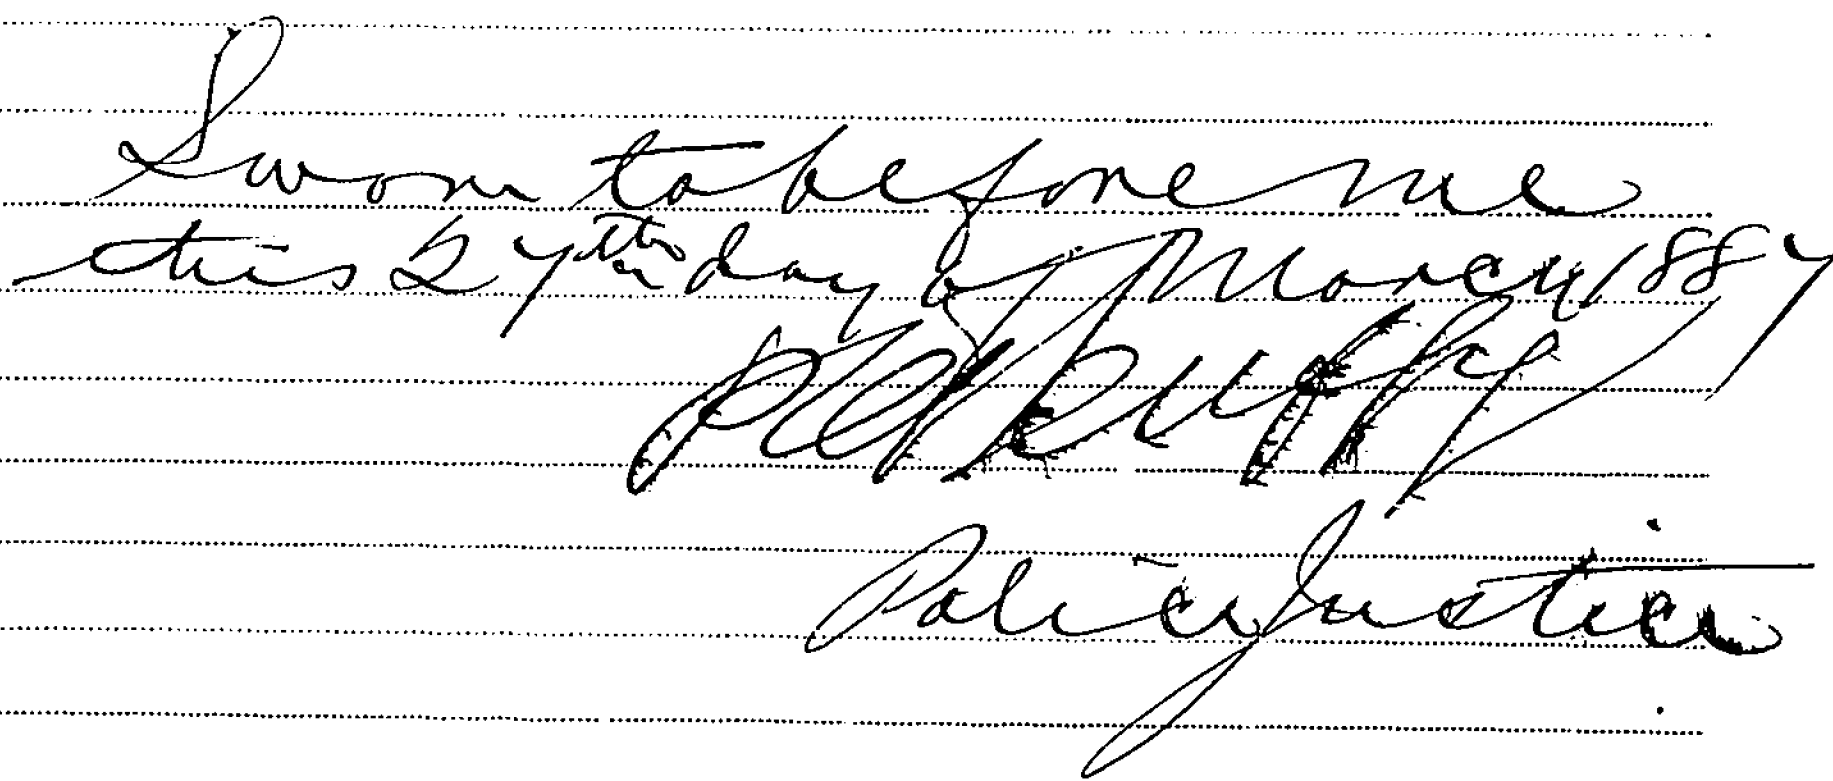 Sworn to before me
this 27th day of March 1887
P G Duffy
Police Justice